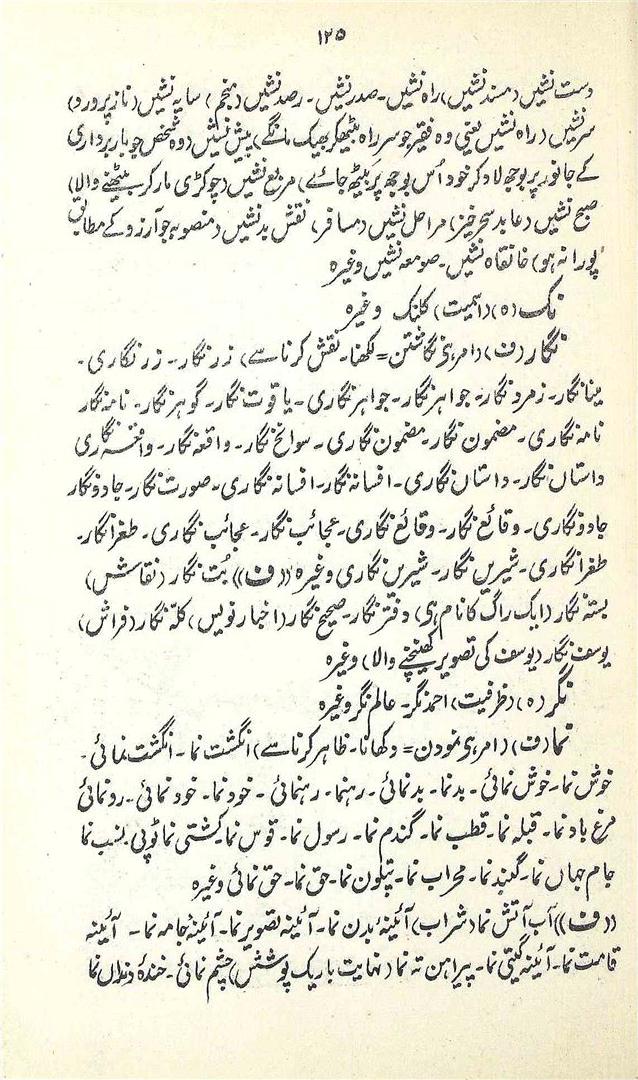 ۱۲۵
دست نشیں (مسند نشیں) راہ نشیں۔ صدر نشیں۔ رصد نشیں (منجم) سایہ نشیں (ناز پرورد)
سر نشیں (راہ نشیں یعنی وہ فقیر جو سرِ راہ بیٹھ کر بھیک مانگے) پیش نشیں (وہ شخص جو باربرداری
کے جانور پر بوجھ لاد کر خود اُس بوجھ پر بیٹھ جائے) مربع نشیں (چوکڑی مار کر بیٹھنے والا)
صبح نشیں (عابد سحر خیز) مراحل نشیں (مسافر) نقش بد نشیں (منصوبہ جو آرزو کے مطابق
پورا نہ ہو) خانقاہ نشیں۔ صومعہ نشیں وغیرہ
نک (ہ) (اسمیت) کلنک وغیرہ
نگار (ف) (امر ہی نگاشتن = لکھنا۔ نقش کرنا سے) زر نگار۔ زر نگاری۔
مینا نگار۔ زمرد نگار۔ جواہر نگار۔ جواہر نگاری۔ یاقوت نگار۔ گوہر نگار۔ نامہ نگار
نامہ نگاری۔ مضمون نگار۔ مضمون نگاری۔ سوانح نگار۔ واقعہ نگار۔ واقعہ نگاری
داستان نگار۔ داستان نگاری۔ افسانہ نگار۔ افسانہ نگاری۔ صورت نگار۔ جادو نگار
جادو نگاری۔ وقائع نگار۔ وقائع نگاری۔ عجائب نگار۔ عجائب نگاری۔ طغرا نگار۔
طغرا نگاری۔ شیریں نگار۔ شیریں نگاری وغیرہ ((ف)) بُت نگار (نقاش)
بستہ نگار (ایک راگ کا نام ہی) دفتر نگار۔ صحیح نگار (اخبار نویس) کلّہ نگار (فراش)
یوسف نگار (یوسف کی تصویر کھینچنے والا) وغیرہ
نگر (ہ) (ظرفیت) احمد نگر۔ عالم نگر وغیرہ
نما (ف) (امر ہی نمودن = دکھانا۔ ظاہر کرنا سے) انگشت نما۔ انگشت نمائی۔
خوش نما۔ خوش نمائی۔ بد نما۔ بد نمائی۔ رہنما۔ رہنمائی۔ خود نما۔ خود نمائی۔ رونمائی
مرغ باد نما۔ قبلہ نما۔ قطب نما۔ گندم نما۔ رسول نما۔ قوس نما۔ کشتی نما ٹوپی۔ نسب نما
جام جہاں نما۔ گنبد نما۔ محراب نما۔ پتلون نما۔ حق نما۔ حق نمائی وغیرہ
((ف)) آب آتش نما (شراب) آئینۂ بدن نما۔ آئینہ تصویر نما۔ آئینۂ جامہ نما۔ آئینہ
قامت نما۔ آئینہ گیتی نما۔ پیراہن تہ نما (نہایت باریک پوشش) چشم نمائی۔ خندۂ دنداں نما